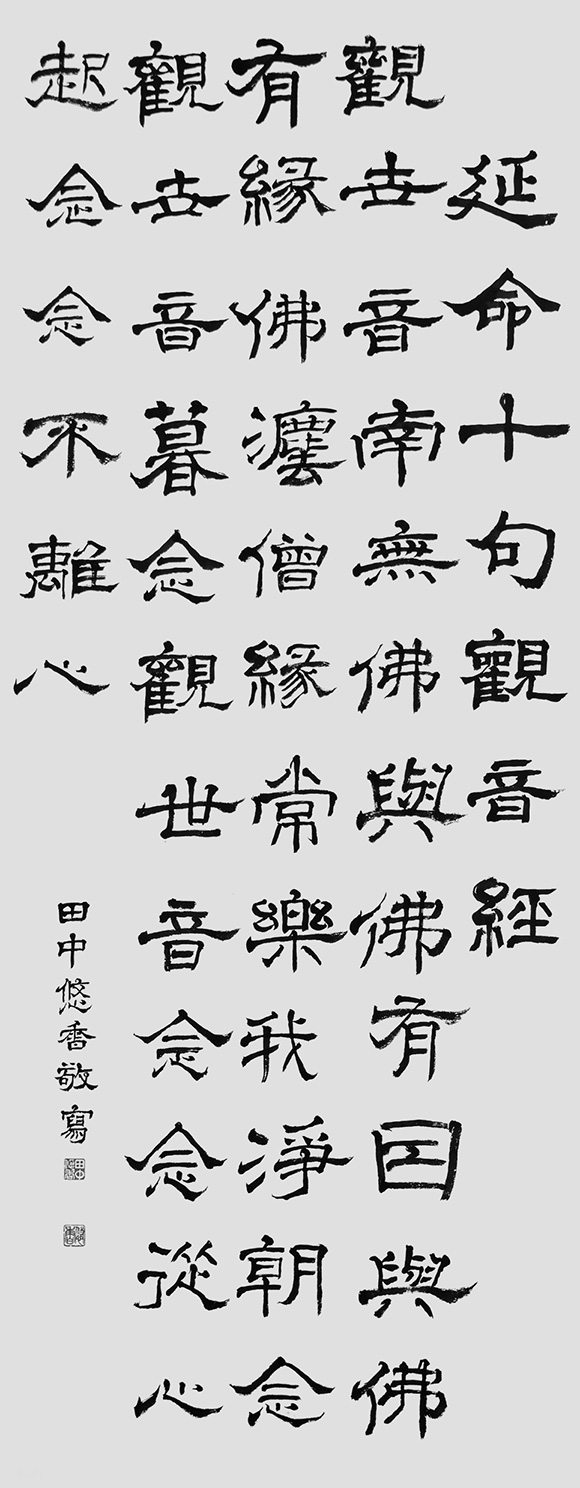 延命十句觀音經
觀世音南無佛與佛有因與佛
有緣佛灋僧緣常樂我淨朝念
觀世音暮念觀世音念念從心
起念念不離心
田中悠香敬寫